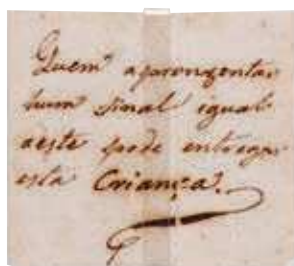 Quem aprongentar
hum sinal igual
aeste pode entregar
esta Criança.